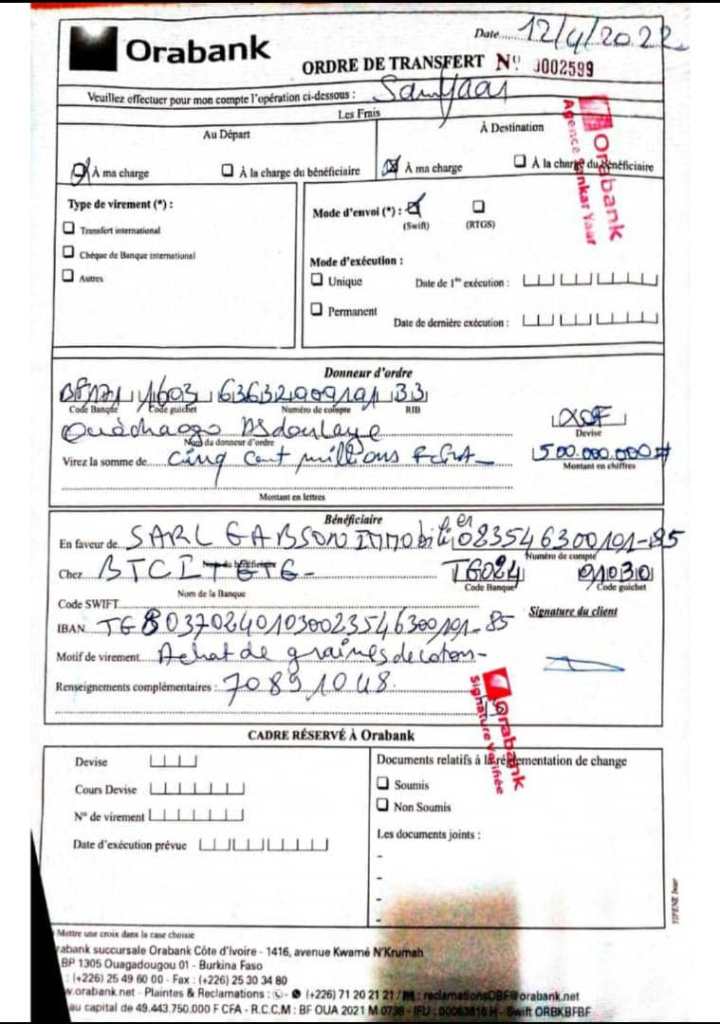 Orabank
Date 12/4/2022
ORDRE DE TRANSFERT Nº 0002599
Veuillez effectuer pour mon compte l'opération ci-dessous : Samyaar
Les Frais
Au Départ
À Destination
À ma charge
À la charge du bénéficiaire
À ma charge
À la charge du bénéficiaire
Orabank
Agence Yaar
Type de virement (*) :
Transfert international
Chèque de Banque international
Autres
Mode d'envoi (*) :
(Swift)
(RTGS)
Mode d'exécution :
Unique
Date de 1ère exécution :
Permanent
Date de dernière exécution :
Donneur d'ordre
1603 636329009191 33
Code Banque Code guichet Numéro de compte RIB
XOF
Devise
Nom du donneur d'ordre
Virez la somme de cinq cent millions FCFA 500.000.000#
Montant en chiffres
Montant en lettres
Bénéficiaire
En faveur de SARL GABSON Immobilier 023546300191-85
Numéro de compte
Chez BTCI TG024 01030
Nom de la Banque
Code Banque Code guichet
Code SWIFT
Signature du client
IBAN
Motif de virement Achat de graines de coton
Renseignements complémentaires : 70891048
Orabank
Signature Vérifiée
CADRE RÉSERVÉ À Orabank
Devise
Cours Devise
N° de virement
Date d'exécution prévue
Documents relatifs à la réglementation de change
Soumis
Non Soumis
Les documents joints :
-
-
-
-
Mettre une croix dans la case choisie
rabank succursale Orabank Côte d'Ivoire - 1416, avenue Kwamé N'Krumah
BP 1305 Ouagadougou 01 - Burkina Faso
: (+226) 25 49 60 00 - Fax : (+226) 25 30 34 80
w.orabank.net - Plaintes & Réclamations : - (+226) 71 20 21 21 / : reclamationsOBF@orabank.net
au capital de 49.443.750.000 F CFA - R.C.C.M : BF OUA 2021 M 0736 - IFU : 00063816 H - Swift ORBKBFBF